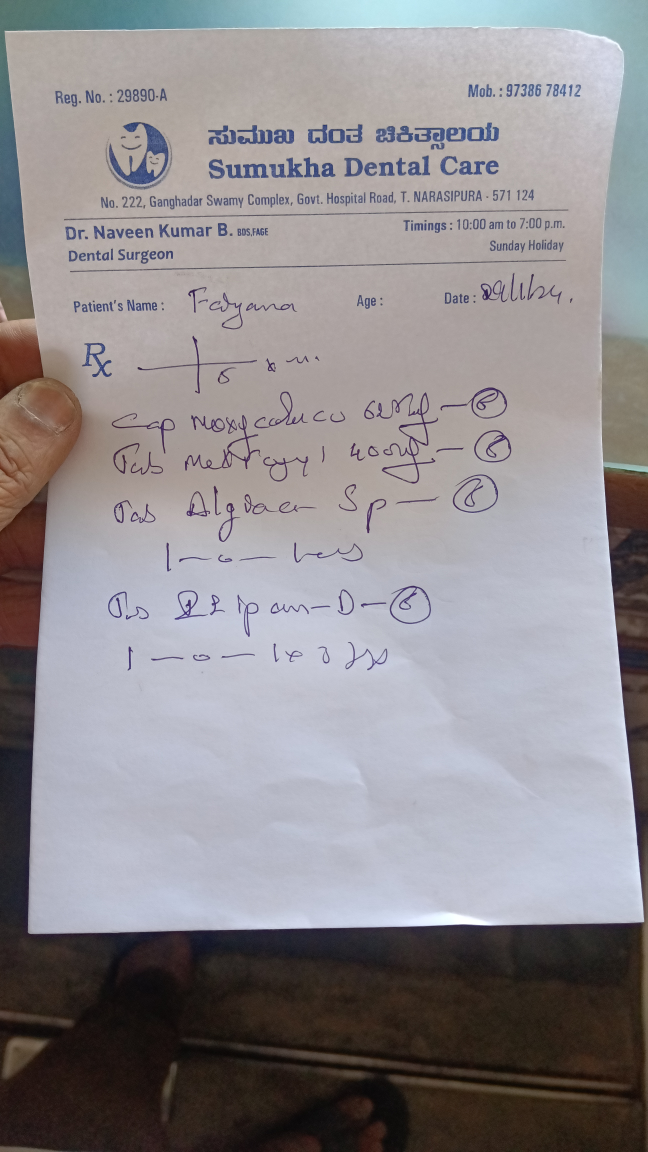 Reg. No. : 29890-A
Mob. : 97386 78412
ಸುಮುಖ ದಂತ ಚಿಕಿತ್ಸಾಲಯ
Sumukha Dental Care
No. 222, Ganghadar Swamy Complex, Govt. Hospital Road, T. NARASIPURA - 571 124
Dr. Naveen Kumar B. BDS,FAGE
Timings : 10:00 am to 7:00 p.m.
Dental Surgeon
Sunday Holiday
Patient's Name :
Age :
Date :
Rx
6
Cap 625mg - 6
Tab Metrogyl 400mg - 6
Tab Sp - 6
1 - 0 -
pan-D - 6
1 - 0 - 1 x 3